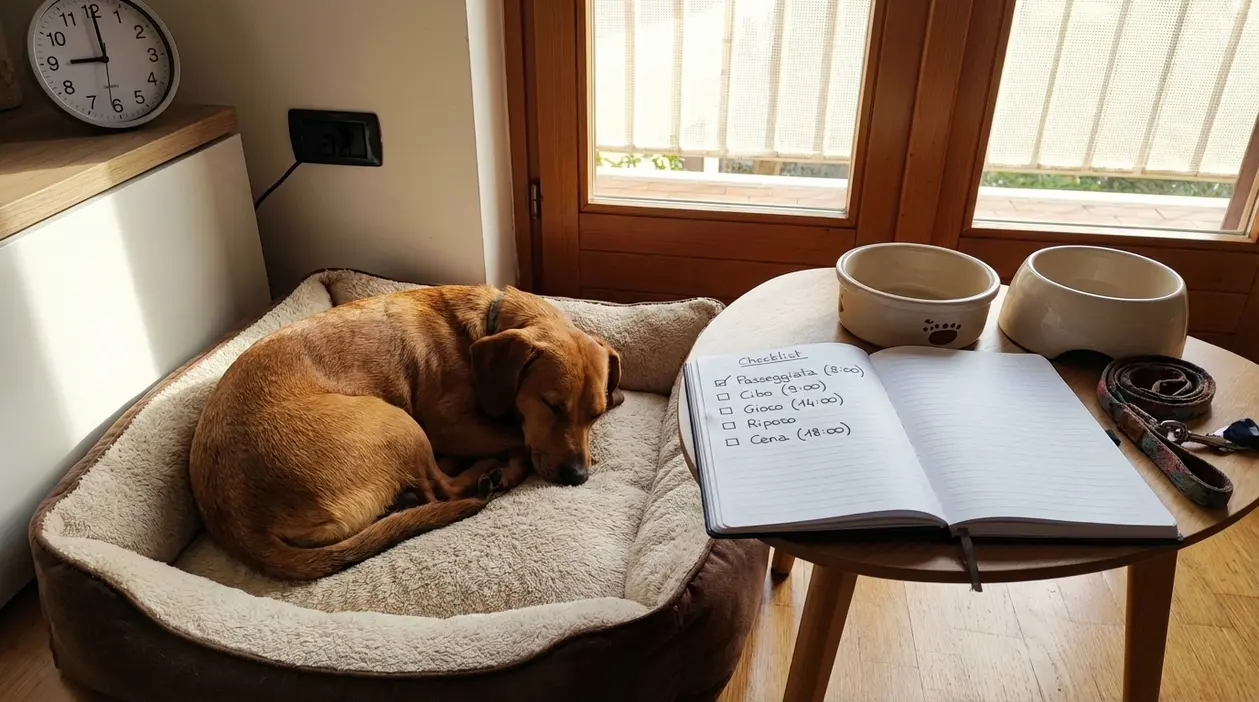 11 12 1
10 2
9 3
8 4
7 6 5
Checklist
☑ Passeggiata (8:00)
☐ Cibo (9:00)
☐ Gioco (14:00)
☐ Riposo
☐ Cena (18:00)